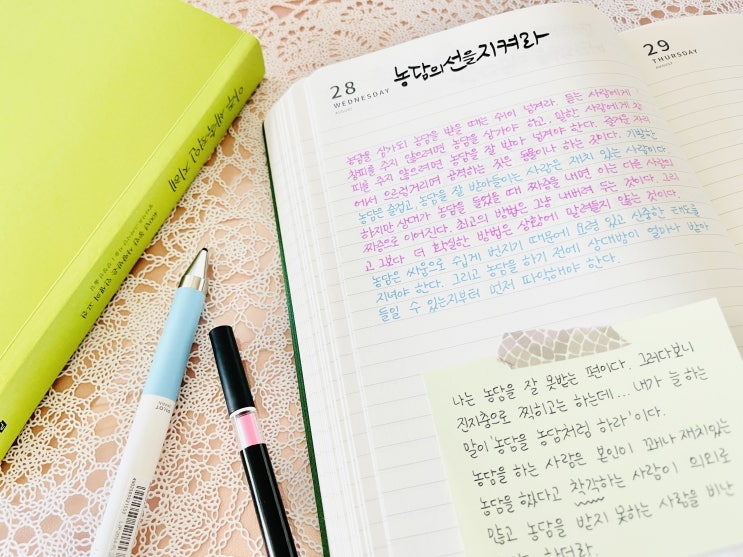 아주 세속적인 지혜
400년 동안 사랑받은 인생의 고전
28
WEDNESDAY
AUGUST
농담의 선을 지켜라
29
THURSDAY
AUGUST
농담을 삼가되 농담을 받을 때는 쉬이 넘겨라. 듣는 사람에게
창피를 주지 않으려면 농담을 삼가야 하고, 말한 사람에게 창
피를 주지 않으려면 농담을 잘 받아 넘겨야 한다. 즐거운 자리
에서 으르렁거리며 응전하는 것은 동물이나 하는 것이다. 기발한
농담은 즐겁고, 농담을 잘 받아들이는 사람은 재치 있는 사람이다
하지만 상대가 농담을 들었을 때 짜증을 내면 이는 다른 사람의
짜증으로 이어진다. 최고의 방법은 그냥 내버려 두는 것이다. 그리
고 그보다 더 확실한 방법은 상황에 말려들지 않는 것이다.
농담은 싸움으로 쉽게 번지기 때문에 요령 있고 신중한 태도를
지녀야 한다. 그리고 농담을 하기 전에 상대방이 얼마나 받아
들일 수 있는지부터 먼저 파악해야 한다.
나는 농담을 잘 못받는 편이다. 그러다보니
진지충으로 찍히고는 하는데... 내가 늘 하는
말이 '농담을 농담처럼 하라'이다.
농담을 하는 사람은 본인이 꽤나 재치있는
농담을 했다고 착각하는 사람이 의외로
많고 농담을 받지 못하는 사람을 비난
PILOT
JAPAN